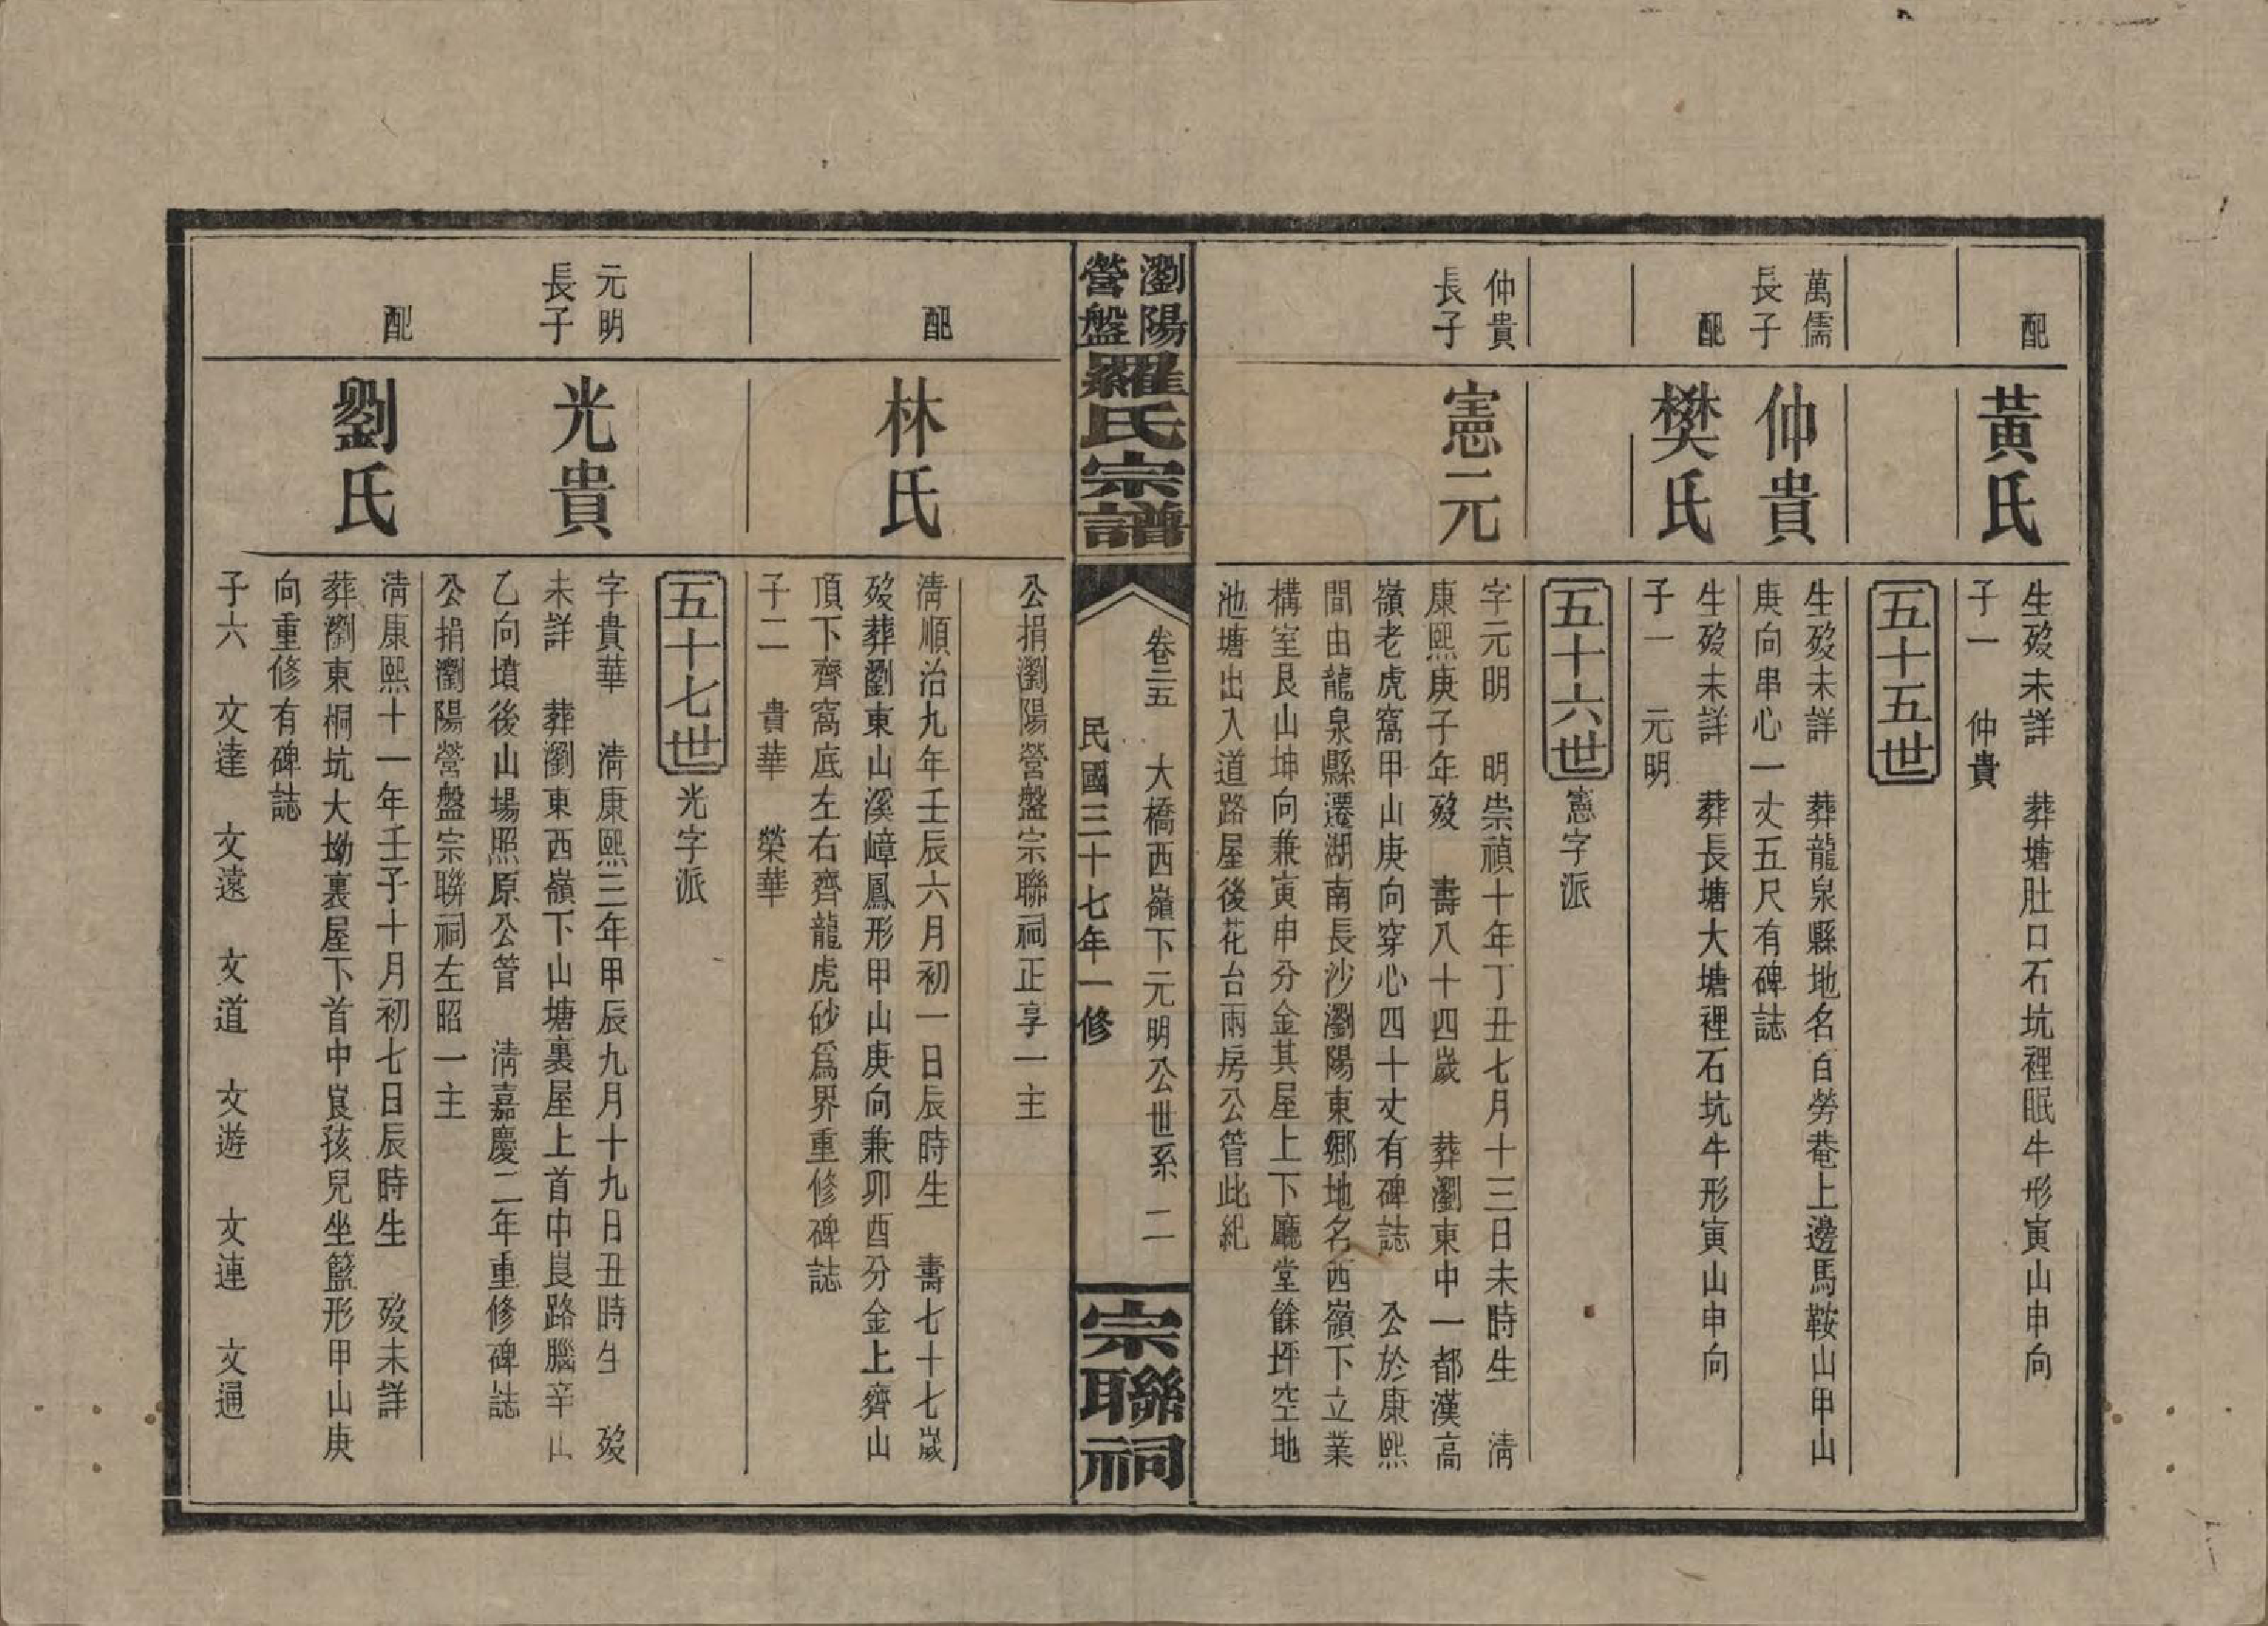 配
黃氏
生歿未詳 葬塘肚口石坑裡眠牛形寅山申向
子一 仲貴
五十五世
萬儒
長子
仲貴
生歿未詳 葬龍泉縣地名百勞菴上邊馬鞍山甲山
庚向串心一丈五尺有碑誌
配
樊氏
生歿未詳 葬長塘大塘裡石坑牛形寅山申向
子一 元明
五十六世 憲字派
仲貴
長子
憲元
字元明 明崇禎十年丁丑七月十三日未時生 清
康熙庚子年歿 壽八十四歲 葬瀏東中一都漢高
嶺老虎窩甲山庚向穿心四十丈有碑誌 公於康熙
間由龍泉縣遷湖南長沙瀏陽東鄉地名西嶺下立業
構室艮山坤向兼寅申分金其屋上下廳堂餘坪空地
池塘出入道路屋後花台兩房公管此紀
瀏陽
營盤
羅氏宗譜
卷三五 大橋西嶺下元明公世系 二
民國三十七年一修
宗聯祠
公捐瀏陽營盤宗聯祠正享一主
配
林氏
清順治九年壬辰六月初一日辰時生 壽七十七歲
歿葬瀏東山溪嶂鳳形甲山庚向兼卯酉分金上齊山
頂下齊窩底左右齊龍虎砂爲界重修碑誌
子二 貴華 榮華
五十七世 光字派
元明
長子
光貴
字貴華 清康熙三年甲辰九月十九日丑時生 歿
未詳 葬瀏東西嶺下山塘裏屋上首中艮路腦辛山
乙向墳後山場照原公管 清嘉慶二年重修碑誌
公捐瀏陽營盤宗聯祠左昭一主
配
劉氏
清康熙十一年壬子十月初七日辰時生 歿未詳
葬瀏東桐坑大坳裏屋下首中艮孩兒坐籃形甲山庚
向重修有碑誌
子六 文達 文遠 文道 文遊 文連 文通